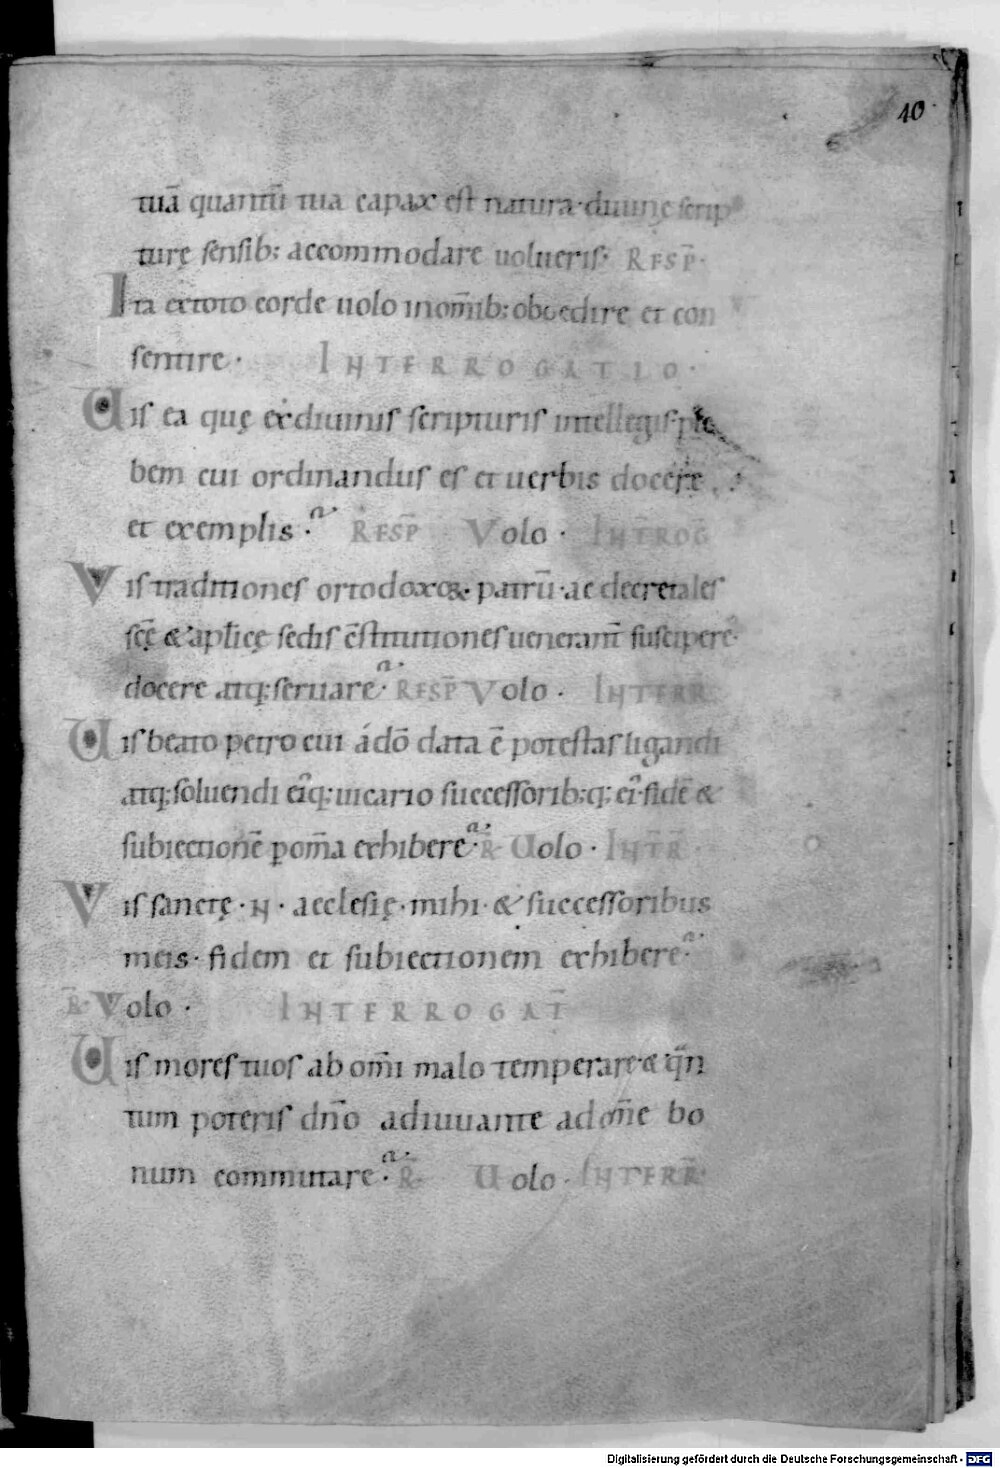 40
tuā quantū tua capax est natura· diuinę scrip
turę sensib; accommodare uolueris· RESP̄·
Ita ex toto corde uolo in om̄ib; oboedire et con
sentire· INTERROGATIO·
Uis ea quę ex diuinis scripturis intellegis· ple
bem cui ordinandus es et uerbis docere
et exemplis· RESP̄ Volo· INTROḠ
Vis traditiones ortodoxoꝝ patrū· ac decretales
scę & aplicę sedis c̄stitutiones ueneranť suscipere·
docere atq; seruare· RESP̄ Volo· INTERR
Uis beato petro cui a dō data ē potestas ligandi
atq; soluendi ei'q; uicario successorib;q; ei' fidē &
subiectionē p om̄a exhibere· R̄ Uolo· INT̄R̄·
Vis sanctę· N· aecclesię· mihi· & successoribus
meis· fidem et subiectionem exhibere·
R̄· Volo· INTERROGAT̄
Uis mores tuos ab om̄i malo temperare· & qⁿ̄
tum poteris dn̄o adiuuante ad om̄e bo
num commutare· R̄· Uolo· INTERR̄·
Digitalisierung gefördert durch die Deutsche Forschungsgemeinschaft - DFG